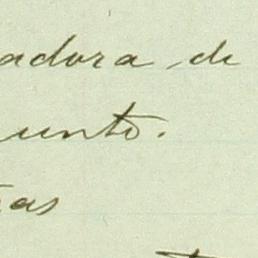 adora de
unto.
as